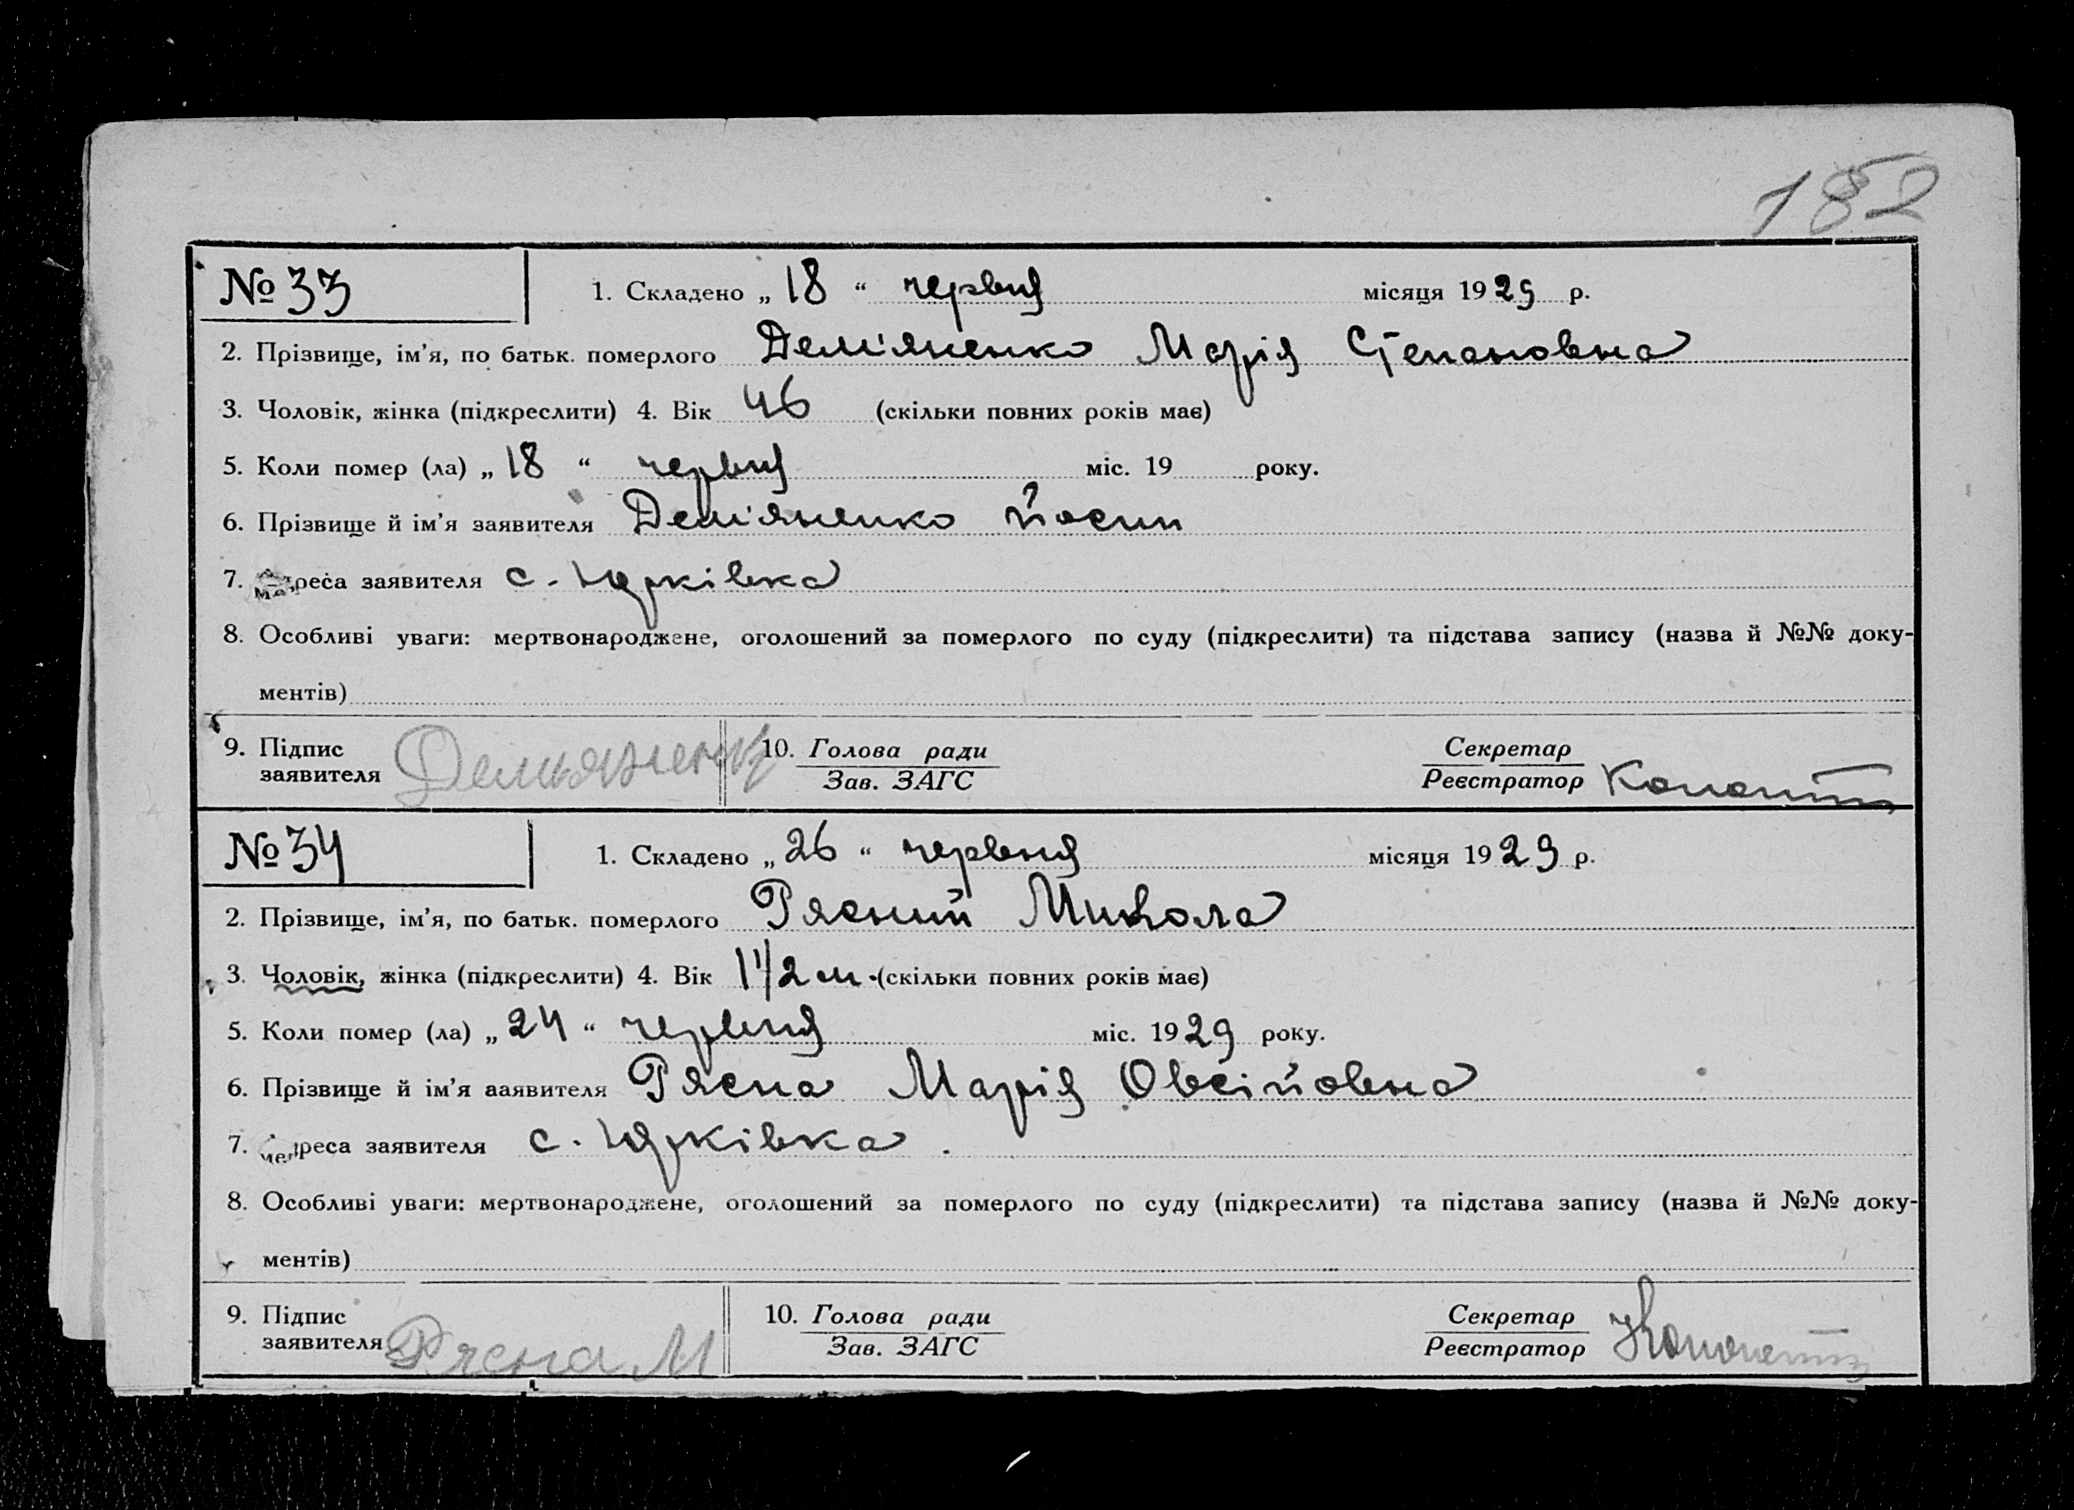 182
№ 33
1. Складено „ 18 “ червня місяця 1929 р.
2. Прізвище, ім’я, по батьк. померлого Дем'яненко Марія Степановна
3. Чоловік, жінка (підкреслити) 4. Вік 46 (скільки повних років має)
5. Коли помер (ла) „ 18 “ червня міс. 19 року.
6. Прізвище й ім’я заявителя Дем'яненко Йосип
7. Адреса заявителя с. Юрківка
8. Особливі уваги: мертвонароджене, оголошений за померлого по суду (підкреслити) та підстава запису (назва й №№ доку-
ментів)
9. Підпис
заявителя Демьяненко
10. Голова ради
Зав. ЗАГС
Секретар
Реєстратор
№ 34
1. Складено „ 26 “ червня місяця 1929 р.
2. Прізвище, ім’я, по батьк. померлого Рясний Микола
3. Чоловік, жінка (підкреслити) 4. Вік 1 1/2 м. (скільки повних років має)
5. Коли помер (ла) „ 24 “ червня міс. 1929 року.
6. Прізвище й ім’я ааявителя Рясна Марія Овсійовна
7. Адреса заявителя с. Юрківка.
8. Особливі уваги: мертвонароджене, оголошений за померлого по суду (підкреслити) та підстава запису (назва й №№ доку-
ментів)
9. Підпис
заявителя Рясна М
10. Голова ради
Зав. ЗАГС
Секретар
Реєстратор